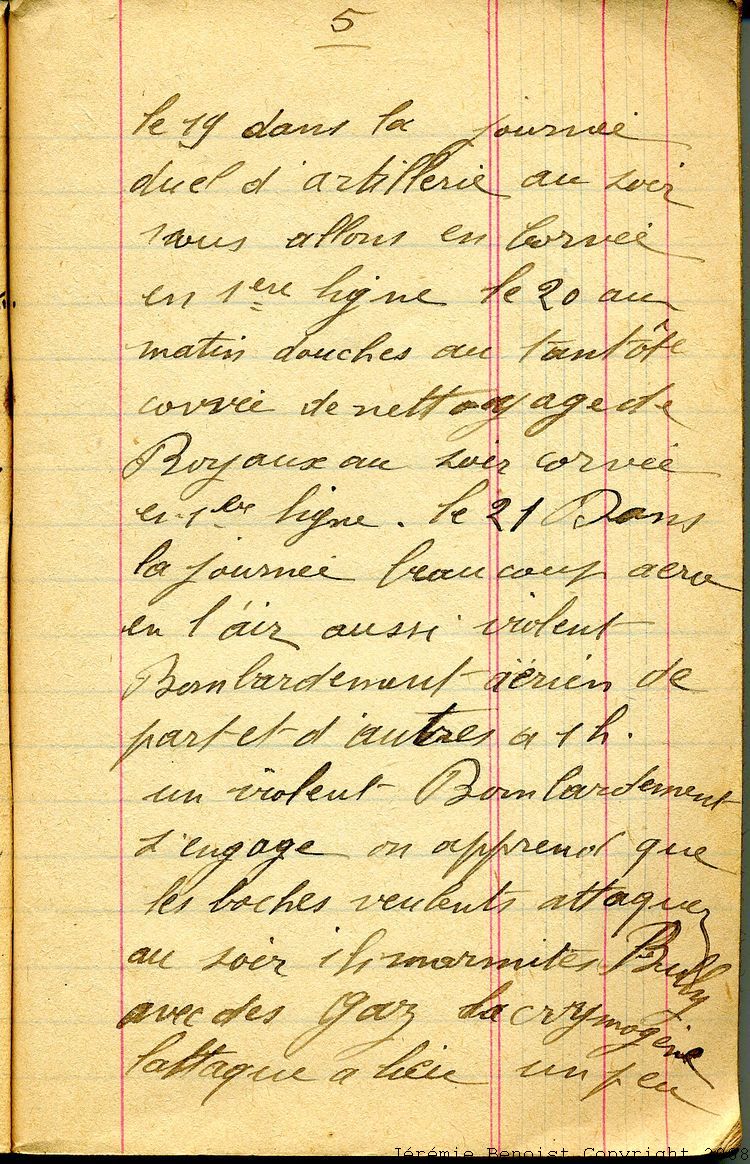 5
le 19 dans la journée
duel d'artillerie au soir
nous allons en corvée
en 1ere ligne le 20 au
matin douches au tantôt
corvée de nettoyage de
Boyaux au soir corvée
en 1ere ligne. le 21 Dans
la journée beaucoup aero
en l'air aussi violent
Bombardement aérien de
part et d'autres a 1 h.
un violent Bombardement
s'engage on apprend que
les boches veulents attaquer
au soir ils marmites Bully
avec des gaz lacrymogène
l'attaque a lieu un peu
Jérémie Benoist Copyright 2008